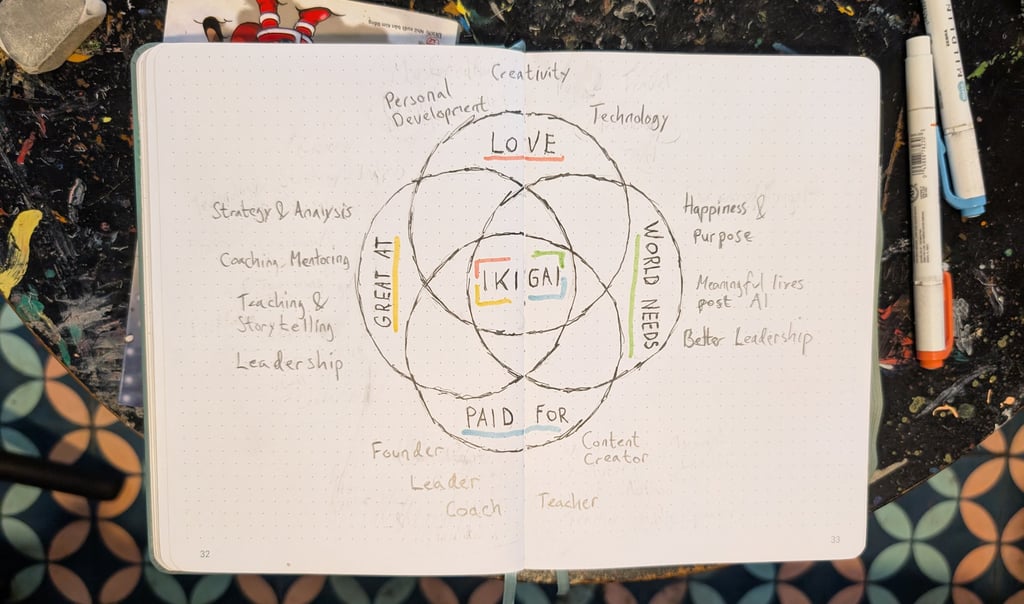 Creativity
Personal
Development
Technology
LOVE
Strategy & Analysis
Coaching, Mentoring
Teaching &
Storytelling
Leadership
GREAT AT
IKIGAI
WORLD NEEDS
Happiness &
Purpose
Meaningful lives
post AI
Better Leadership
PAID FOR
Founder
Leader
Coach
Content
Creator
Teacher
32
33